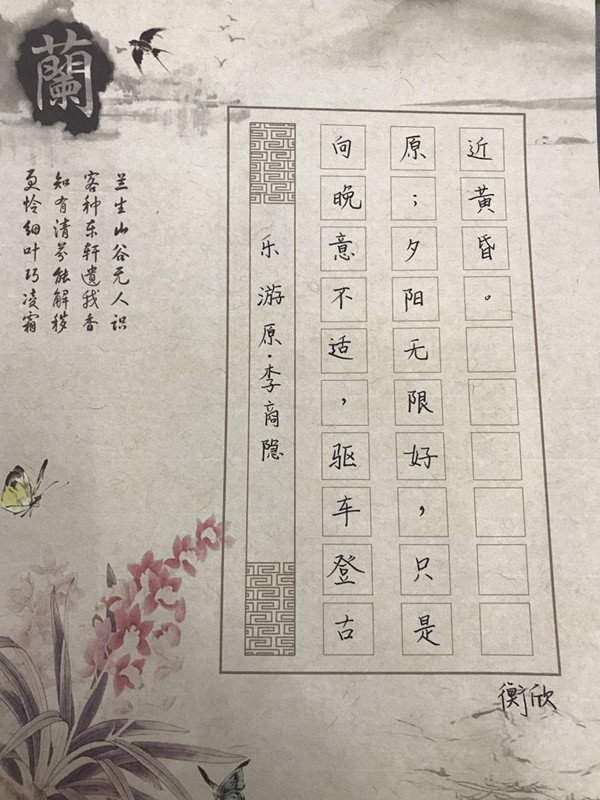 蘭
兰生山谷无人识
客种东轩遗我香
知有清芬能解秽
更怜细叶巧凌霜
乐游原·李商隐
向晚意不适，驱车登古
原；夕阳无限好，只是
近黄昏。
衡欣